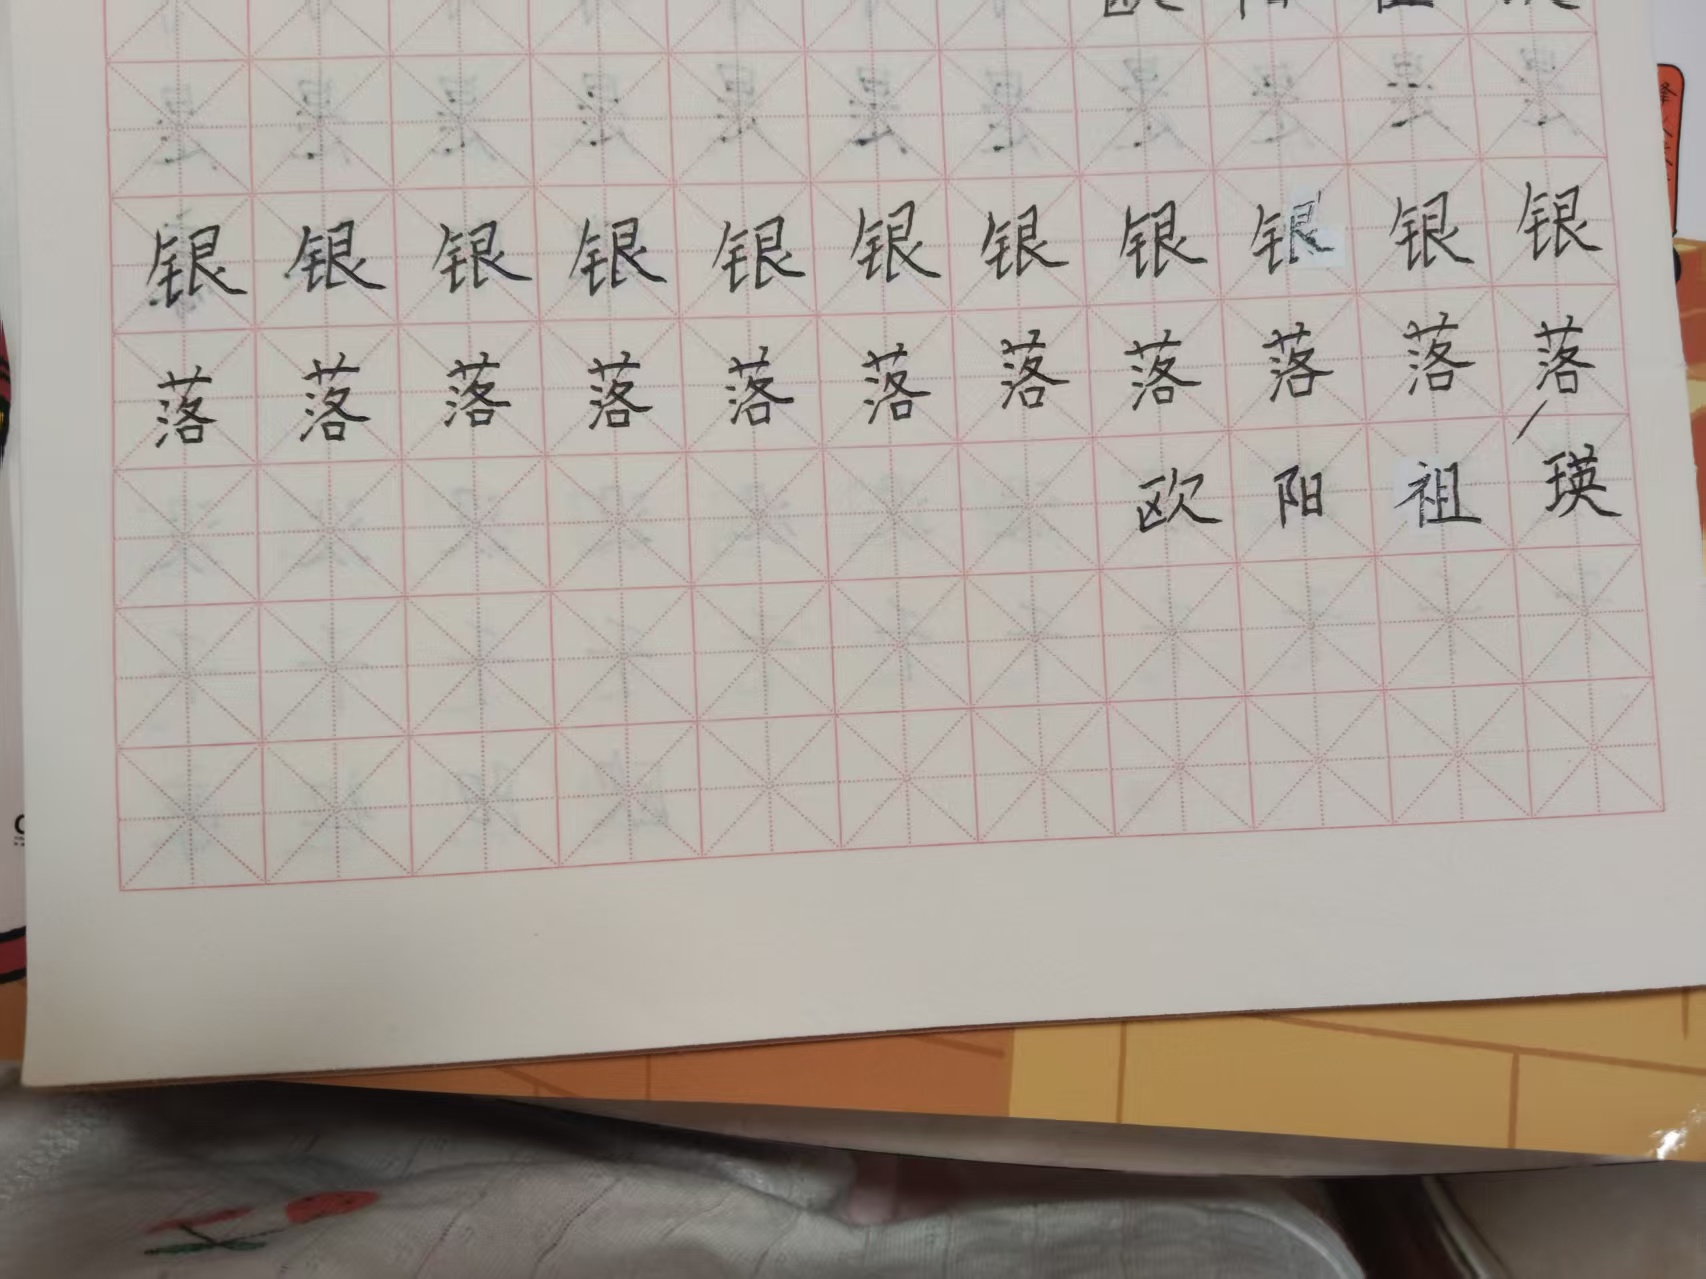 欧阳祖瑛
银银银银银银银银银银银
落落落落落落落落落落落
欧阳祖瑛